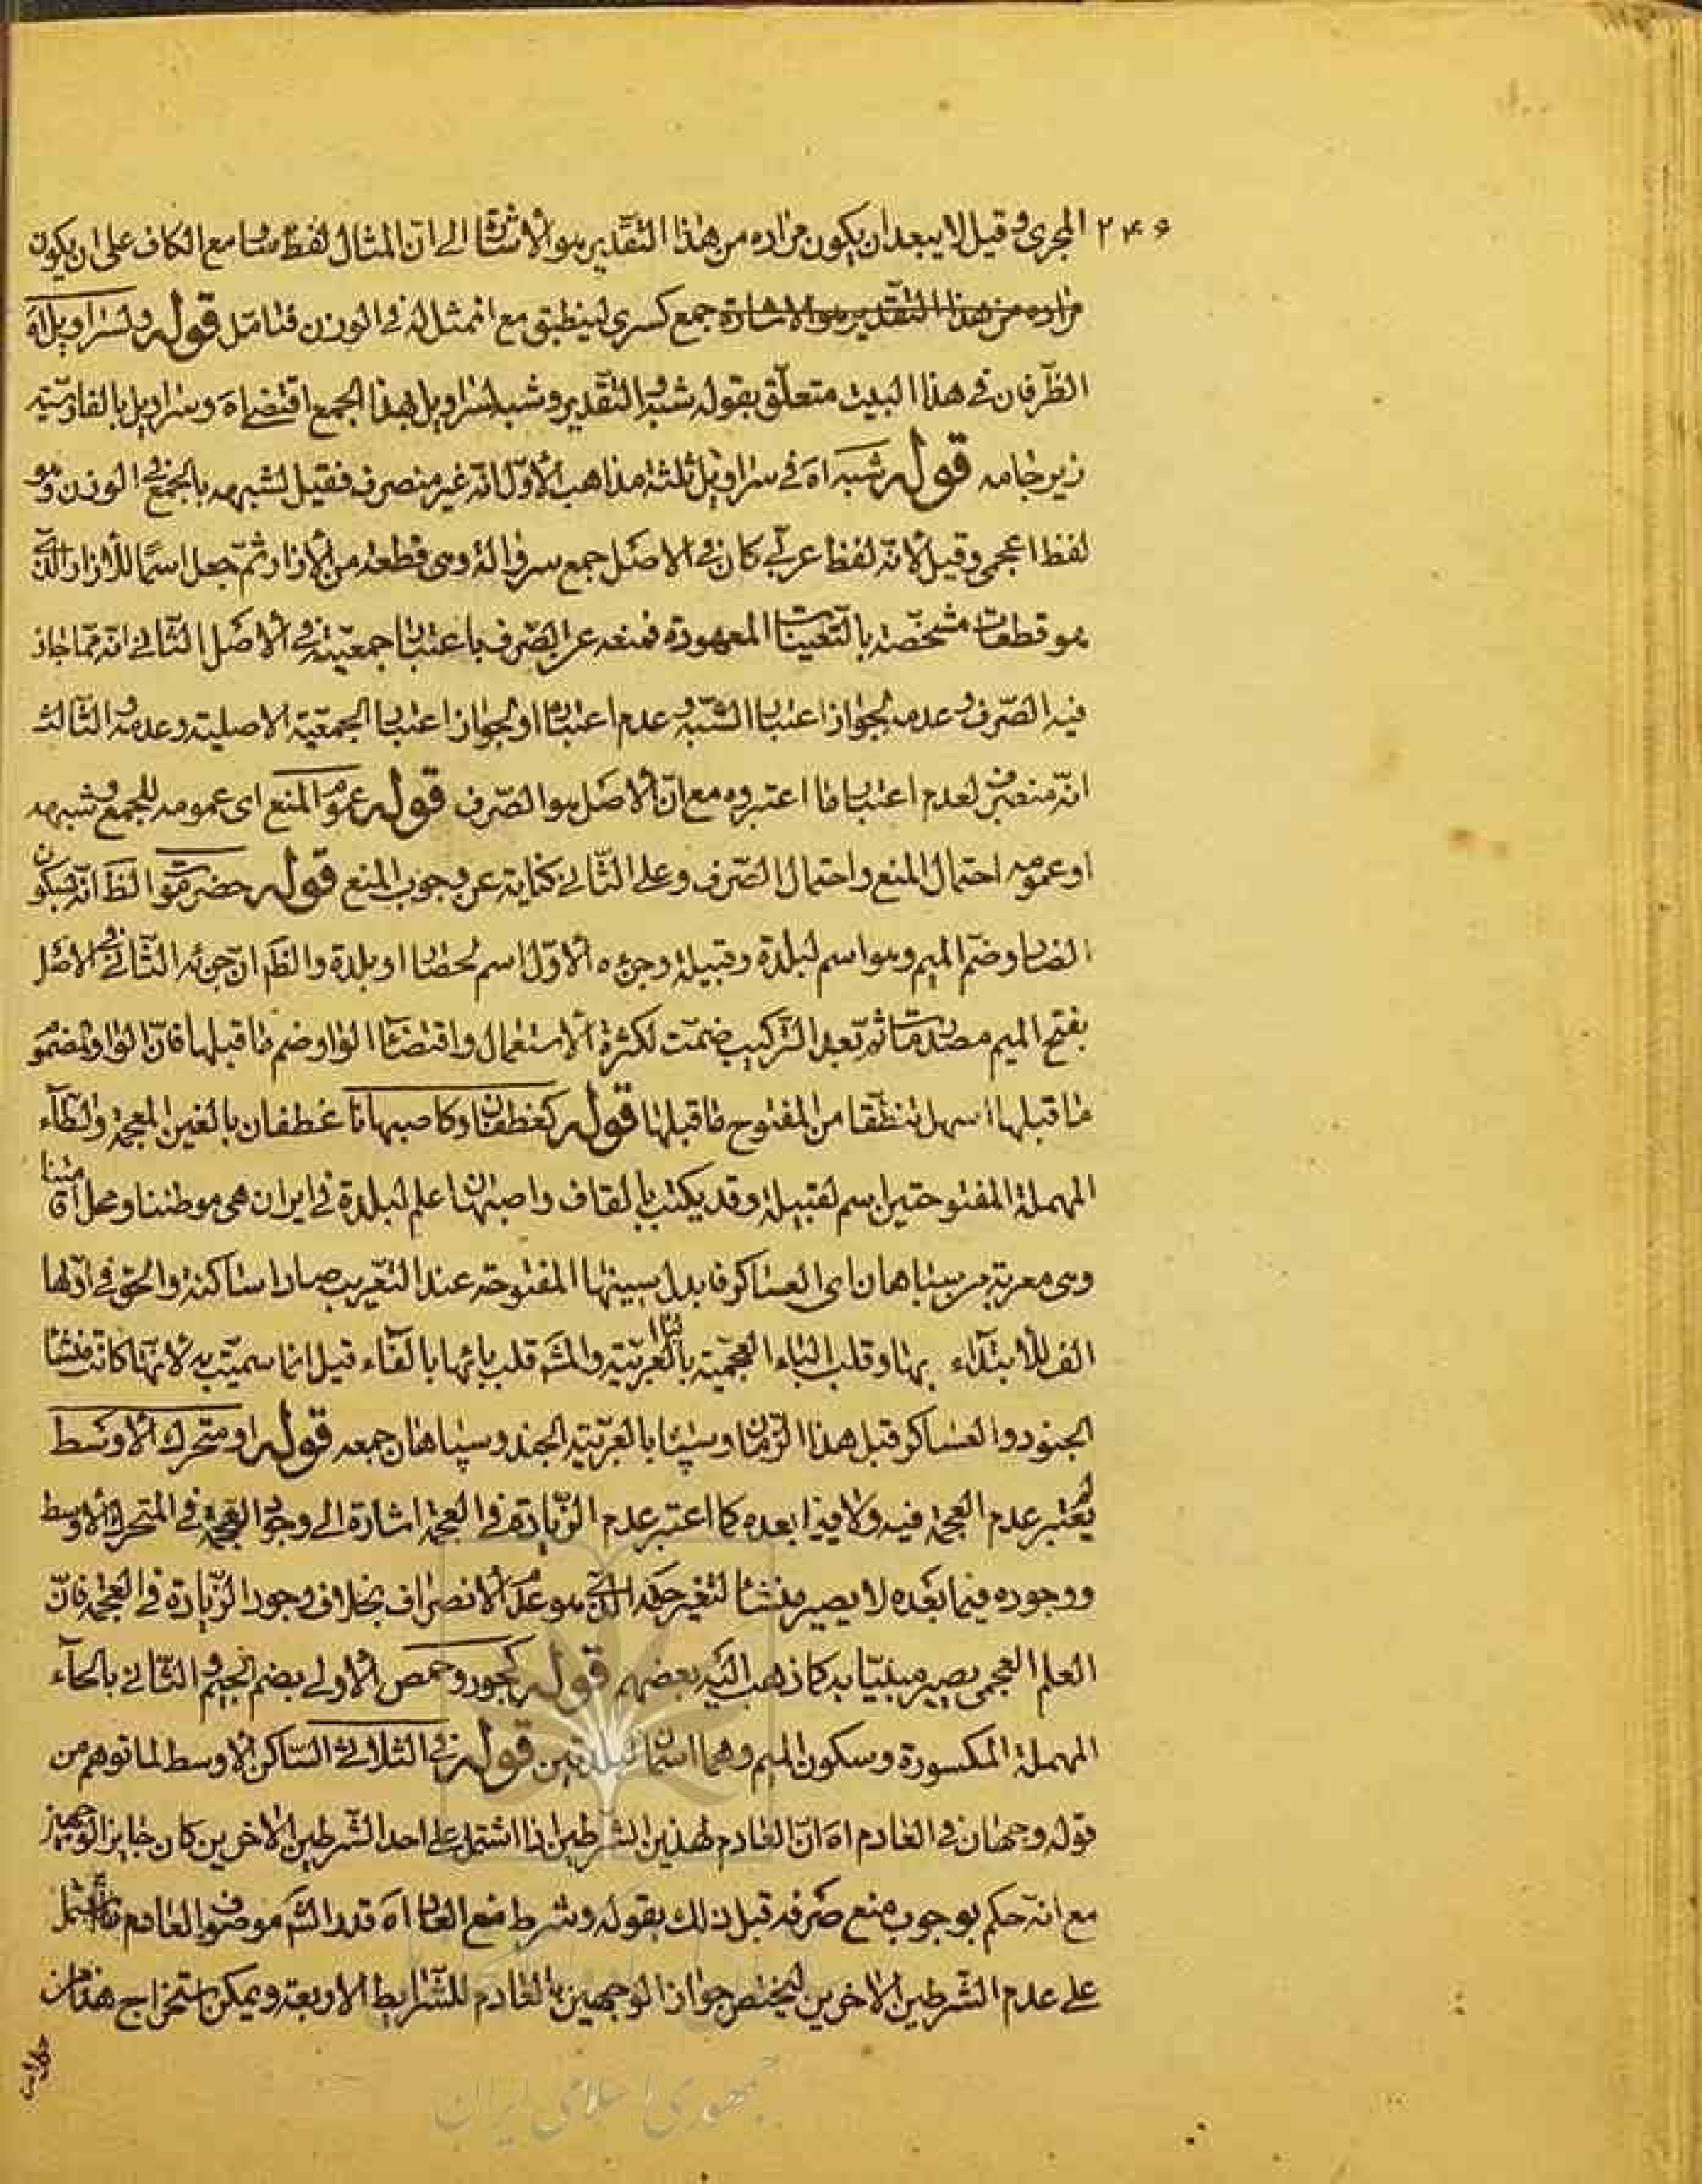 ٢٤٦ المجرى وقيل لا يبعد ان يكون مراده من هذا التقدير هو الاشارة الى ان المثال لفظ مع الكاف على ان يكون
مراده من هذا التقدير هو الاشارة جمع كسرى لينطبق مع الممثل له فى الوزن فتامل قوله ولسراويل اه
الظرفان فى هذا البيت متعلق بقوله شبه التقدير وشبه لسراويل بهذا الجمع اقتضى اه وسراويل بالفارسية
زيرجامه قوله شبه اه فى سراويل ثلثة مذاهب الأوّل انه غير منصرف فقيل لشبهه بالجمع فى الوزن وهو
لفظ اعجمى وقيل لانه لفظ عربى كان فى الاصل جمع سروالة وهى قطعة من الازار ثم جعل اسمًا للازار الذى
هو قطعات مشخصة بالتعينات المعهودة فمنعه عن الصرف باعتبار جمعيته فى الاصل الثانى انه مما جاز
فيه الصرف وعدمه لجواز اعتبار الشبه وعدم اعتباره او لجواز اعتبار الجمعية الاصلية وعدمه الثالث
انه منصرف لعدم اعتبار ما اعتبروه مع ان الاصل هو الصرف قوله عموم المنع اى عمومه للجمع وشبهه
او عمومه احتمال المنع واحتمال الصرف وعلى الثانى كناية عن وجوب المنع قوله حضرموت الظ انه بسكون
الضاد وضم الميم وهو اسم لبلدة وقبيلة وجزءه الاول اسم لحضار او بلدة والظ ان جزئه الثانى فى الاصل
بفتح الميم مصدر مات ثم بعد التركيب ضمت لكثرة الاستعمال واقتضاء الواو ضم ما قبلها فان الواو المضموم
ما قبلها اسهل تنطقا من المفتوح ما قبلها قوله كغطفان وكاصبهانا غطفان بالغين المعجمة والطاء
المهملة المفتوحتين اسم لقبيلة وقد يكتب بالقاف واصبهان علم لبلدة فى ايران هى موطننا ومحل اقامتنا
وهى معربة من سپاهان اى العساكر فابدل سينها المفتوحة عند التعريب صادا ساكنة والحق فى اولها
الف للابتداء بها وقلب الباء العجمية بالباء العربية والمش قلب بائها بالفاء قيل انما سميت به لانها كانت منشأ
الجنود والعساكر قبل هذا الزمان وسپا بالعربية الجند وسپاهان جمعه قوله او متحرك الاوسط
لم يعتبر عدم العجمة فيه ولا فيما بعده كما اعتبر عدم الزيادة فى العجمة اشارة الى وجود العجمة فى المتحرك الاوسط
ووجوده فيما بعده لا يصير منشأ لتغير حكمه الذى هو عدم الانصراف بخلاف وجود الزيادة فى العجمة فان
العلم العجمى يصير مبنيا به كما ذهب اليه بعضهم قوله كجور وحمص الاولى بضم الجيم والثانى بالحاء
المهملة المكسورة وسكون الميم وهما اسمان لبلدين قوله فى الثلاثى الساكن الاوسط لما توهم من
قوله وجهان فى العادم اه ان العادم لهذين الشرطين اذا اشتمل على احد الشرطين الاخرين كان جايز الوجهين
مع انه حكم بوجوب منع صرفه قبل ذلك بقوله وشرط منع العار اه قدر الش موصوف العادم ما اشتمل
على عدم الشرطين الاخرين ليختص جواز الوجهين بالعادم للشرايط الاربعة ويمكن استخراج هذا من